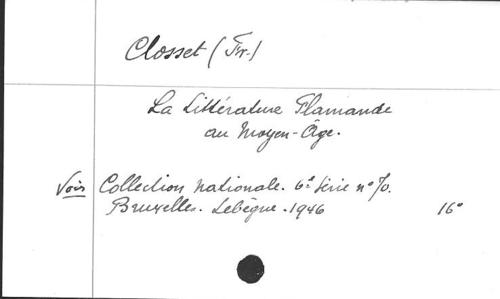 Closset (Fr.)
La Littérature Flamande
au Moyen-Âge.
Voir Collection Nationale. 6e Série n° 70.
Bruxelles. Lebègue. 1946 16°